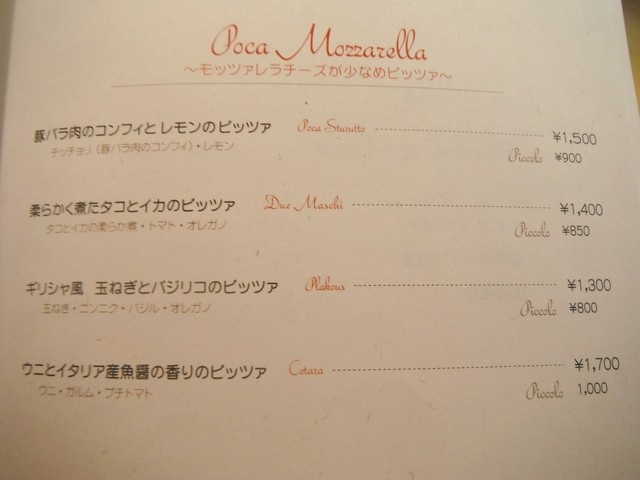 Poca Mozzarella
～モッツァレラチーズが少なめピッツァ～
豚バラ肉のコンフィとレモンのピッツァ Poca Strutto ¥1,500
チッチョリ（豚バラ肉のコンフィ）・レモン Piccolo ¥900
柔らかく煮たタコとイカのピッツァ Due Maschi ¥1,400
タコとイカの柔らか煮・トマト・オレガノ Piccolo ¥850
ギリシャ風 玉ねぎとバジリコのピッツァ Plakous ¥1,300
玉ねぎ・ニンニク・バジル・オレガノ Piccolo ¥800
ウニとイタリア産魚醤の香りのピッツァ Cetara ¥1,700
ウニ・ガルム・プチトマト Piccolo 1,000